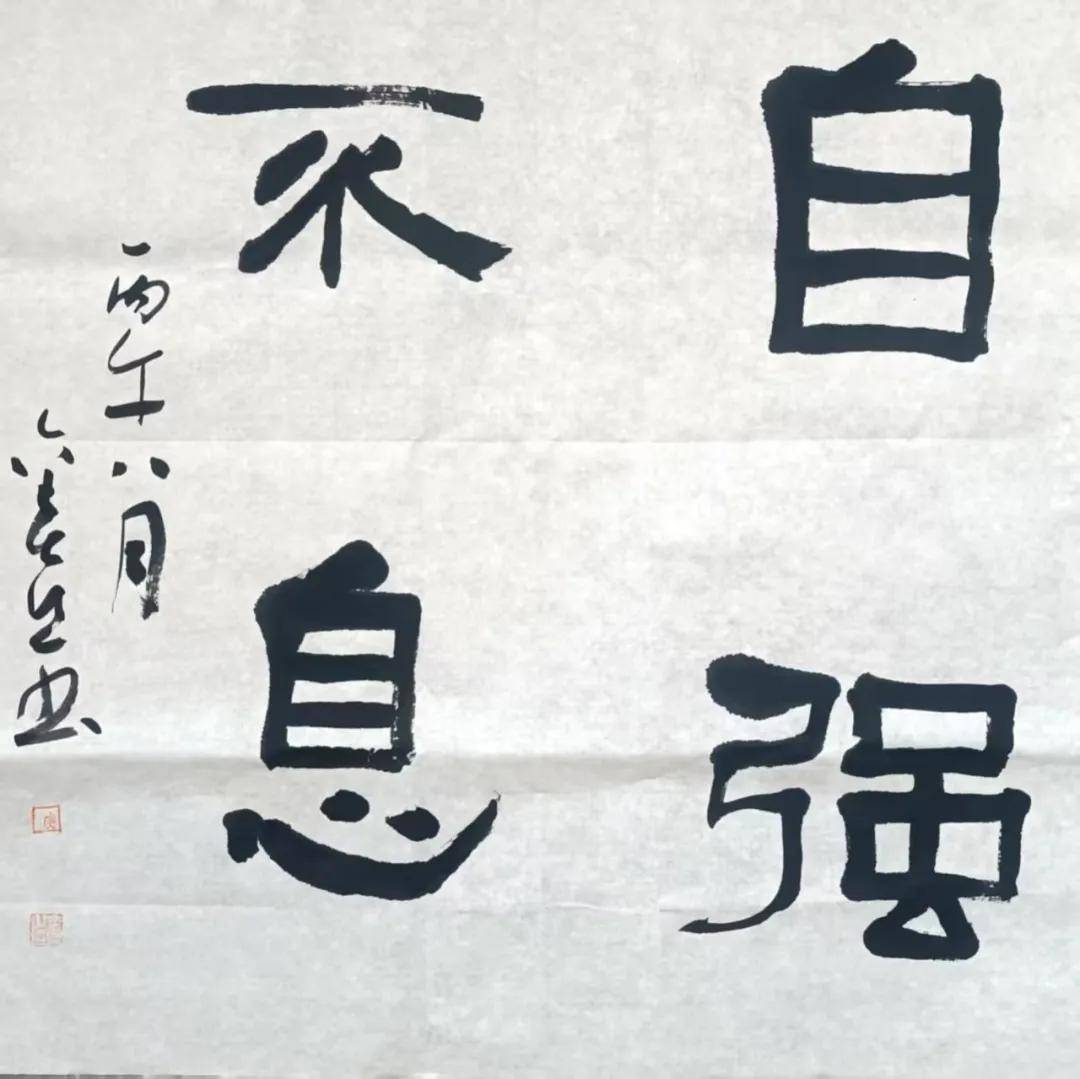 自强
不息
丙午八月
书